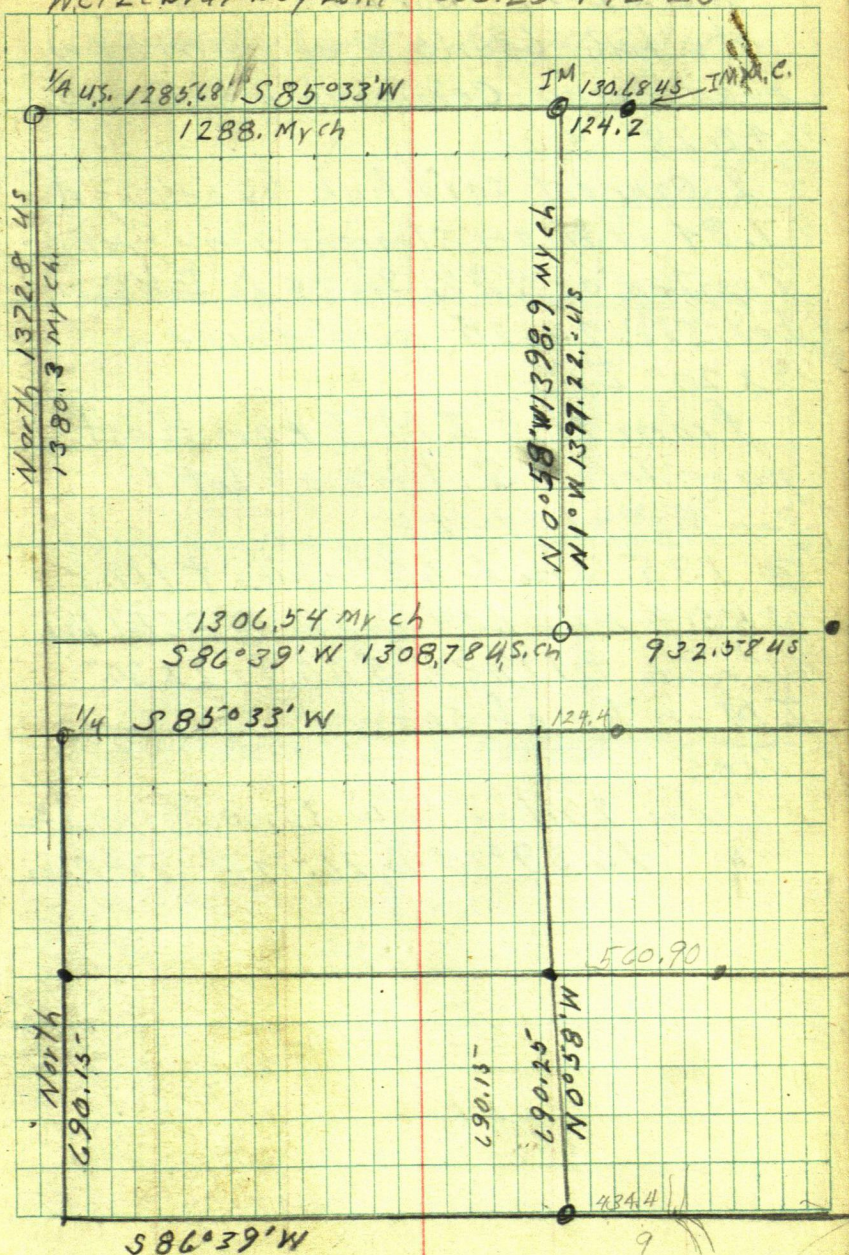 1/4 U.S. 1285.68 S 85°33' W
IM 130.68 US I.M.M.C.
1288. My ch
124.2
North 1372.8 US
1380.3 My ch.
N 0°58' W 1398.9 My ch
N 1° W 1397.22 US
1306.54 My ch
S 86°39' W 1308.78 U.S. ch
932.58 US
1/4 S 85°33' W
124.4
560.90
North
690.15
690.15
690.25
N 0°58' W
434.4
S 86°39' W
9